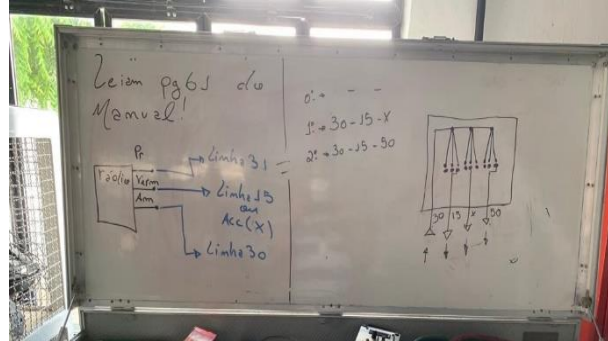 Leiam pg61 do
Manual!
Pr
rádio
Verm
Am
Linha 31
Linha 15
ou
Acc(X)
Linha 30
0: → - -
1: → 30-15-X
2: → 30-15-50
30 15 X 50